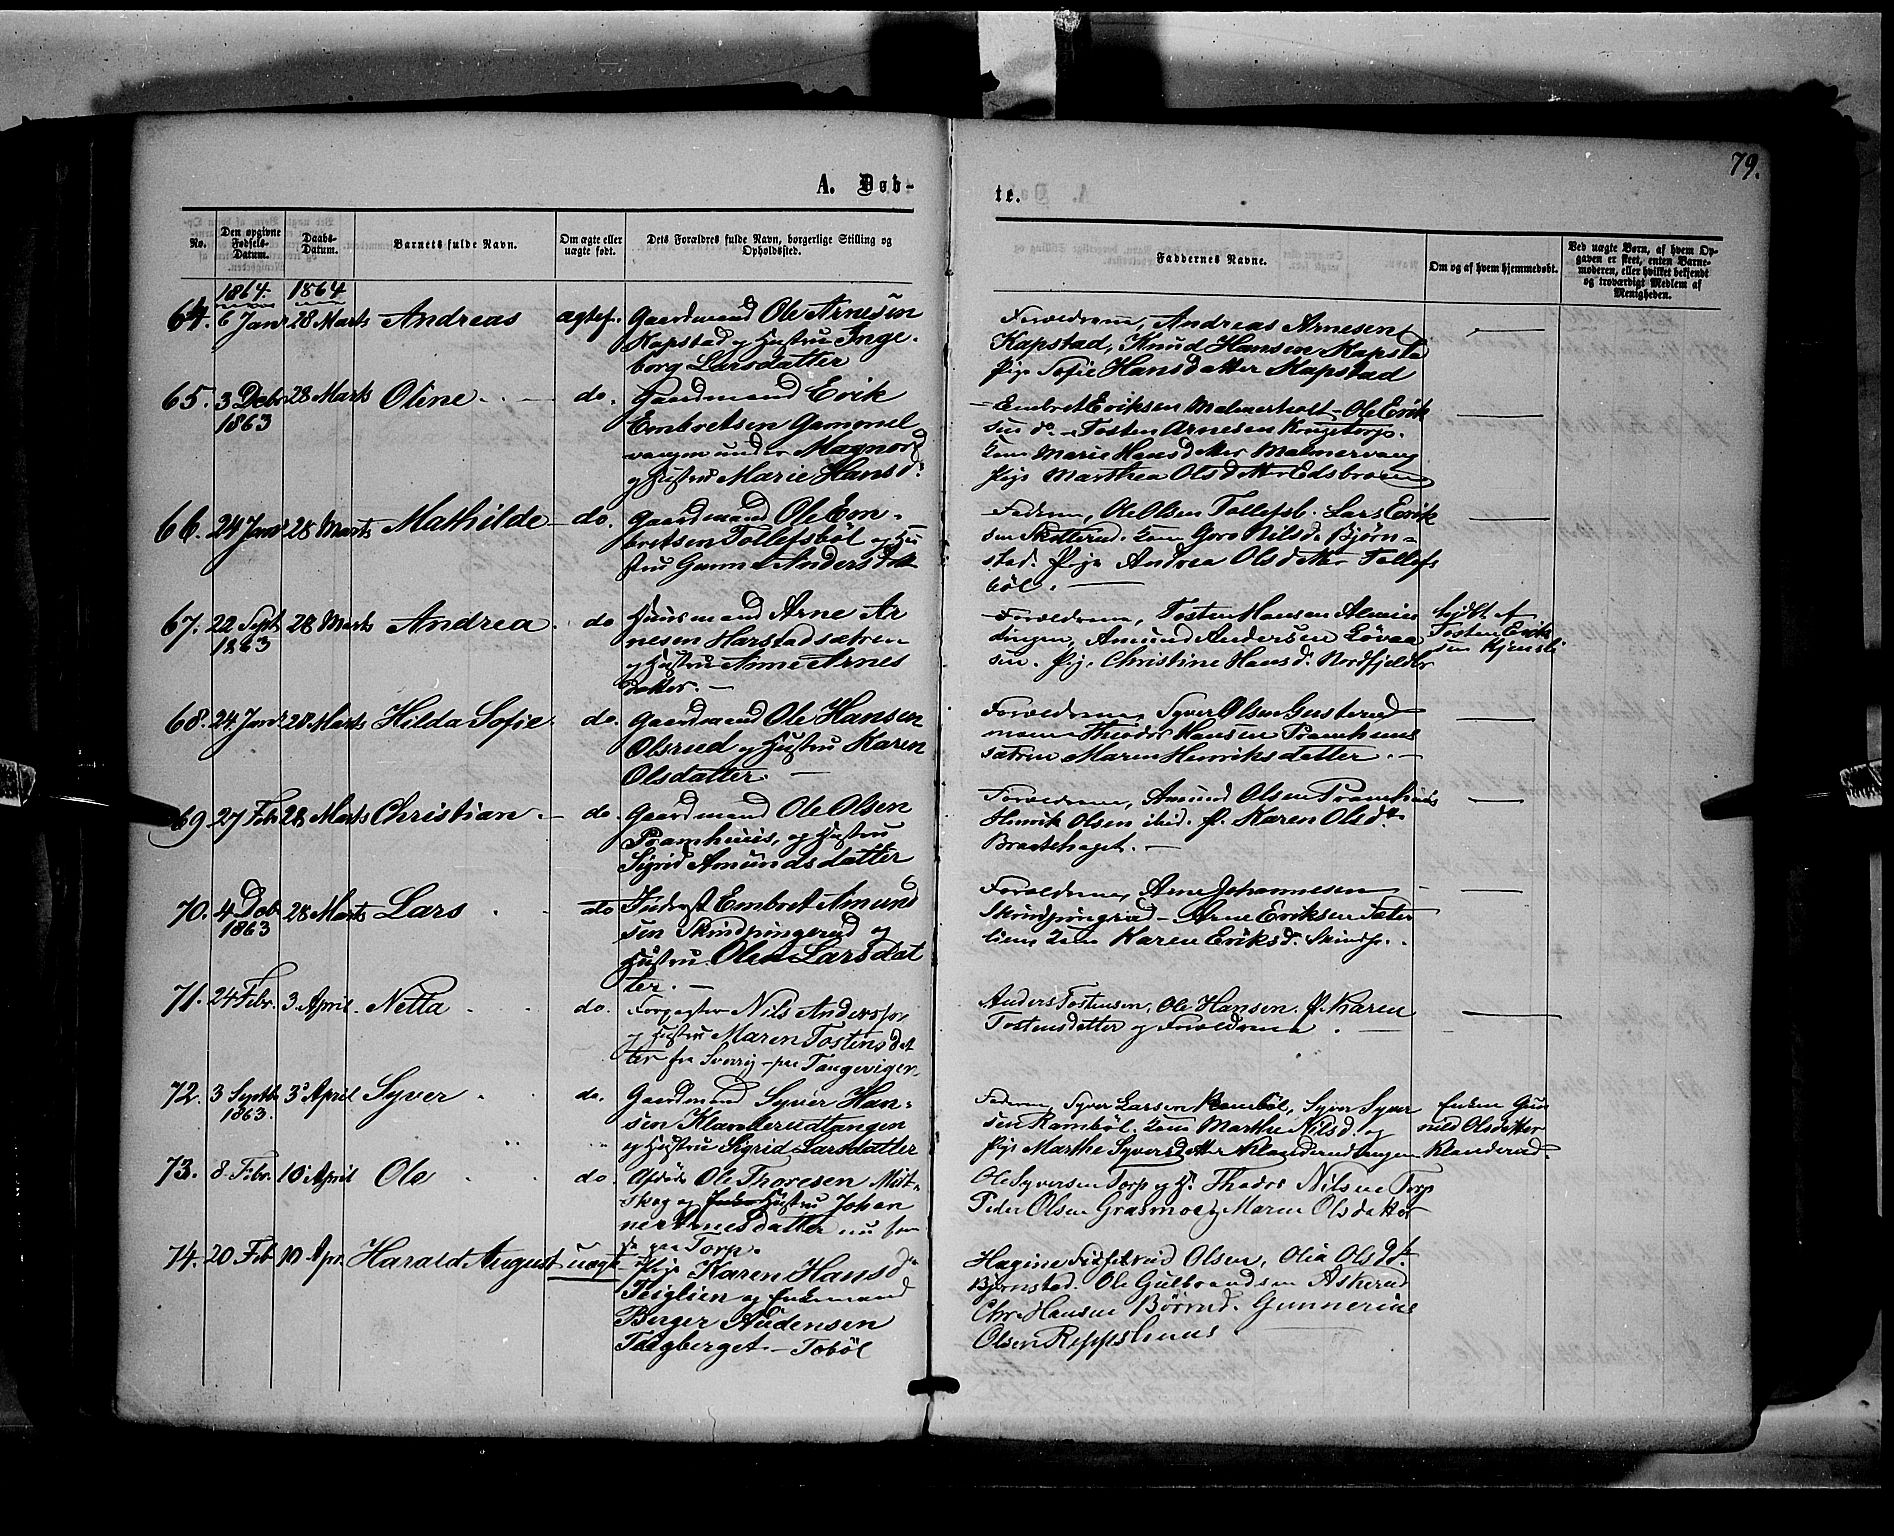 79.
A. Døb-
te.
No.
Den opgivne Fødsels-Datum.
Daabs-Datum.
Barnets fulde Navn.
Om ægte eller uægte født.
Dets Forældres fulde Navn, borgerlige Stilling og Opholdssted.
Faddernes Navne.
Om og af hvem hjemmedøbt.
Ved uægte Børn, af hvem Opgaven er skeet, enten Barnemoderen, eller hvilket bekjendt og troværdigt Medlem af Menigheden.
1864. 1864
64. 6 Janr 28 Marts Andreas ægtef. Gaardmand Ole Arnesen
Kapstad og Hustru Inge-
borg Larsdatter
Forældrene, Andreas Arnesen
Kapstad, Knud Hansen Kapsta
Pige Sofie Hansdatter Kapstad
65. 3 Debr 28 Marts Oline do. Gaardmand Erik
1863 Embretsen Gammel
vangen under Magnor
og Hustru Marie Hansd.
Embret Eriksen Malmerholt - Ole Erik
sen do - Tosten Arnesen Kongetorp.
Kone Marie Hansdatter Malmervang
Pige Marthea Olsdatter Edsbroen
66. 24 Janr 28 Marts Mathilde do. Gaardmand Ole Em-
bretsen Tollefsböl og Hu
stru Gunn Andersdatt
Faderen, Ole Olsen Tollefsb. Lars Erik
sen Skotterud. Kone Goro Nilsd. Bjørn-
stad. Pige Andrea Olsdatter Tollefs
böl.
67. 22 Sept 28 Marts Andrea do Huusmand Arne Ar
1863 nesen Harstadsætren
og Hustru Anne Arnes
datter.
Forældrene, Tosten Hansen
dingen, Amund Andersen Lövaa
sen. Pige Christine Hansd. Nordfjeldet
døbt af
Tosten Erik
sen Kjensli
68. 24 Janr 28 Marts Hilda Sofie do. Gaardmand Ole Hansen
Olsrud og Hustru Karen
Olsdatter.
Forældrene, Syver Olsen Gusterud
Hansen Pramhuus
sætren Maren Henriksdatter.
69 27 Feb 28 Marts Christian do. Gaardmand Ole Olsen
Pramhuus, og Hustru
Sigrid Amundsdatter
Forældrene, Amund Olsen Pramhuus
Henrik Olsen ibid. P. Karen Olsdt
Bratehaget.
70. 4 Deb 28 Marts Lars do Inderst Embret Amund
1863 sen Skindpungerud og
Hustru Olea Larsdat
ter.
Forældrene, Arne Johannesen
Skindpungrud - Arne Eriksen Sæter
lien Kone Karen Eriksd. Skindp.
71. 24 Febr. 3 April Netta do. Forpagter Nils Andersson
og Hustru Maren Tostensdat
ter fra Sverrig - paa Tangeviger
Anders Tostensen, Ole Hansen. P. Karen
Tostensdatter og Forældrene.
72. 3 Septb 3 April Syver do. Gaardmand Syver Han-
1863. sen Klanderudtangen
og Hustru Sigrid Larsdatter
Faderen, Syver Larsen Ramböl, Syver Syver
sen Ramböl. Kone Marthe Nilsd. og
Pige Marthe Syversdatter Klanderudtangen
Enken Gun
nild Olsdatter
Klanderud.
73. 8 Febr. 10 April Ole do. Afdøde Ole Thoresen Mat-
skog og Hustru Johan
ne Arnesdatter nu
paa Torp.
Ole Syversen Torp og H. Theodor Nilsen Torp
Peder Olsen Grasmoe, Maren Olsdatter
74. 20 Feb 10 Apr. Harald August uægte Pige Karen Hansd.
Teiglien og Enkemand
Berger Audensen
Taigberget - Toböl
Hagine Olsen, Olia Olsdt.
Bjørnstad. Ole Gulbrandsen Askerud
Chr. Hansen Børrud. Gunnerius
Olsen Reppshuus.